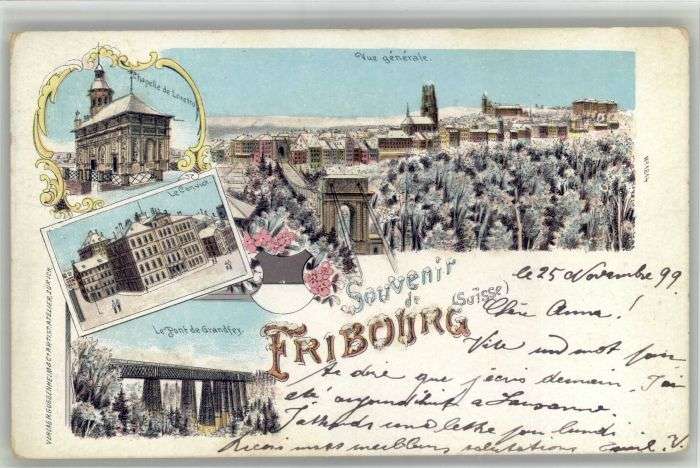 Vue générale.
Chapelle de Lorette
Le Convict
Souvenir
de
FRIBOURG
(Suisse)
Le Pont de Grandfey
VERLAG H. GUGGENHEIM & Cº ARTIST. ATELIER, ZÜRICH
le 25 Novembre 99
Chère Anna!
Vite und mot pour
te dire que j'écris demain. J'ai
été aujourd'hui a Lausanne.
J'attends une lettre pour lundi.
Reçois mes meilleurs salutations